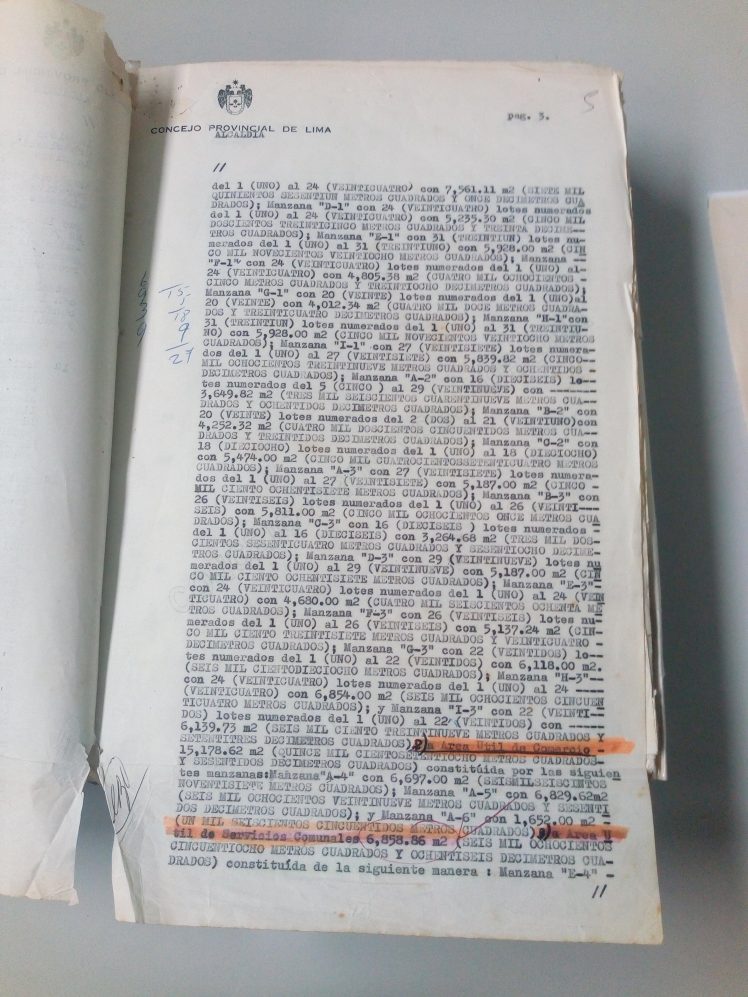 5
pag. 3.
CONCEJO PROVINCIAL DE LIMA
ALCALDIA
//
del 1 (UNO) al 24 (VEINTICUATRO) con 7,561.11 m2 (SIETE MIL
QUINIENTOS SESENTIUN METROS CUADRADOS Y ONCE DECIMETROS CUA
DRADOS); Manzana "D-1" con 24 (VEINTICUATRO) lotes numerados
del 1 (UNO) al 24 (VEINTICUATRO) con 5,235.30 m2 (CINCO MIL
DOSCIENTOS TREINTICINCO METROS CUADRADOS Y TREINTA DECIME---
TROS CUADRADOS); Manzana "E-1" con 31 (TREINTIUN) lotes nu-
merados del 1 (UNO) al 31 (TREINTIUNO) con 5,928.00 m2 (CIN
CO MIL NOVECIENTOS VEINTIOCHO METROS CUADRADOS); Manzana --
"F-1" con 24 (VEINTICUATRO) lotes numerados del 1 (UNO) al-
24 (VEINTICUATRO) con 4,805.38 m2 (CUATRO MIL OCHOCIENTOS -
CINCO METROS CUADRADOS Y TREINTIOCHO DECIMETROS CUADRADOS);
Manzana "G-1" con 20 (VEINTE) lotes numerados del 1 (UNO)al
20 (VEINTE) con 4,012.34 m2 (CUATRO MIL DOCE METROS CUADRA-
DOS Y TREINTICUATRO DECIMETROS CUADRADOS); Manzana "H-1"con
31 (TREINTIUN) lotes numerados del 1 (UNO) al 31 (TREINTIU-
NO) con 5,928.00 m2 (CINCO MIL NOVECIENTOS VEINTIOCHO METROS
CUADRADOS); Manzana "I-1" con 27 (VEINTISIETE) lotes numera-
dos del 1 (UNO) al 27 (VEINTISIETE) con 5,839.82 m2 (CINCO--
MIL OCHOCIENTOS TREINTINUEVE METROS CUADRADOS Y OCHENTIDOS -
DECIMETROS CUADRADOS); Manzana "A-2" con 16 (DIECISEIS) lo-
tes numerados del 5 (CINCO ) al 29 (VEINTINUEVE) con -------
3,649.82 m2 (TRES MIL SEISCIENTOS CUARENTINUEVE METROS CUA--
DRADOS Y OCHENTIDOS DECIMETROS CUADRADOS); Manzana "B-2" con
20 (VEINTE) lotes numerados del 2 (DOS) al 21 (VEINTIUNO)con
4,252.32 m2 (CUATRO MIL DOSCIENTOS CINCUENTIDOS METROS CUA--
DRADOS Y TREINTIDOS DECIMETROS CUADRADOS); Manzana "C-2" con
18 (DIECIOCHO) lotes numerados del 1 (UNO) al 18 (DIECIOCHO)
con 5,474.00 m2 (CINCO MIL CUATROCIENTOSSETENTICUATRO METROS
CUADRADOS); Manzana "A-3" con 27 (VEINTISIETE) lotes numera-
dos del 1 (UNO) al 27 (VEINTISIETE) con 5,187.00 m2 (CINCO -
MIL CIENTO OCHENTISIETE METROS CUADRADOS); Manzana "B-3" con
26 (VEINTISEIS) lotes numerados del 1 (UNO) al 26 (VEINTI----
SEIS) con 5,811.00 m2 (CINCO MIL OCHOCIENTOS ONCE METROS CUA
DRADOS); Manzana "C-3" con 16 (DIECISEIS ) lotes numerados -
del 1 (UNO) al 16 (DIECISEIS) con 3,264.68 m2 (TRES MIL DOS-
CIENTOS SESENTICUATRO METROS CUADRADOS Y SESENTIOCHO DECIME-
TROS CUADRADOS); Manzana "D-3" con 29 (VEINTINUEVE) lotes nu
merados del 1 (UNO) al 29 (VEINTINUEVE) con 5,187.00 m2 (CIN
CO MIL CIENTO OCHENTISIETE METROS CUADRADOS); Manzana "E-3"-
con 24 (VEINTICUATRO) lotes numerados del 1 (UNO) al 24 (VEIN
TICUATRO) con 4,680.00 m2 (CUATRO MIL SEISCIENTOS OCHENTA ME
TROS CUADRADOS); Manzana "F-3" con 26 (VEINTISEIS) lotes nu-
merados del 1 (UNO) al 26 (VEINTISEIS) con 5,137.24 m2 (CIN-
CO MIL CIENTO TREINTISIETE METROS CUADRADOS Y VEINTICUATRO -
DECIMETROS CUADRADOS); Manzana "G-3" con 22 (VEINTIDOS) lo--
tes numerados del 1 (UNO) al 22 (VEINTIDOS) con 6,118.00 m2.
(SEIS MIL CIENTODIECIOCHO METROS CUADRADOS); Manzana "H-3"--
con 24 (VEINTICUATRO) lotes numerados del 1 (UNO) al 24 ----
(VEINTICUATRO) con 6,854.00 m2 (SEIS MIL OCHOCIENTOS CINCUEN
TICUATRO METROS CUADRADOS); y Manzana "I-3" con 22 (VEINTI--
DOS) lotes numerados del 1 (UNO) al 22 (VEINTIDOS) con -----
6,139.73 m2 (SEIS MIL CIENTO TREINTINUEVE METROS CUADRADOS Y
SETENTITRES DECIMETROS CUADRADOS) a Area Util de Comercio -
15,178.62 m2 (QUINCE MIL CIENTOSETENTIOCHO METROS CUADRADOS-
Y SESENTIDOS DECIMETROS CUADRADOS) constituída por las siguien
tes manzanas:Manzana"A-4" con 6,697.00 m2 (SEISMILSEISCINTOS
NOVENTISIETE METROS CUADRADOS); Manzana "A-5" con 6,829.62m2
(SEIS MIL OCHOCIENTOS VEINTINUEVE METROS CUADRADOS Y SESENTI
DOS DECIMETROS CUADRADOS); y Manzana "A-6" con 1,652.00 m2 -
(UN MIL SEISCIENTOS CINCUENTIDOS METROS CUADRADOS) a Area U
til de Servicios Comunales 6,858.86 m2 (SEIS MIL OCHOCIENTOS
CINCUENTIOCHO METROS CUADRADOS Y OCHENTISEIS DECIMETROS CUA-
DRADOS) constituída de la siguiente manera : Manzana "E-4" -
//
18
9
27